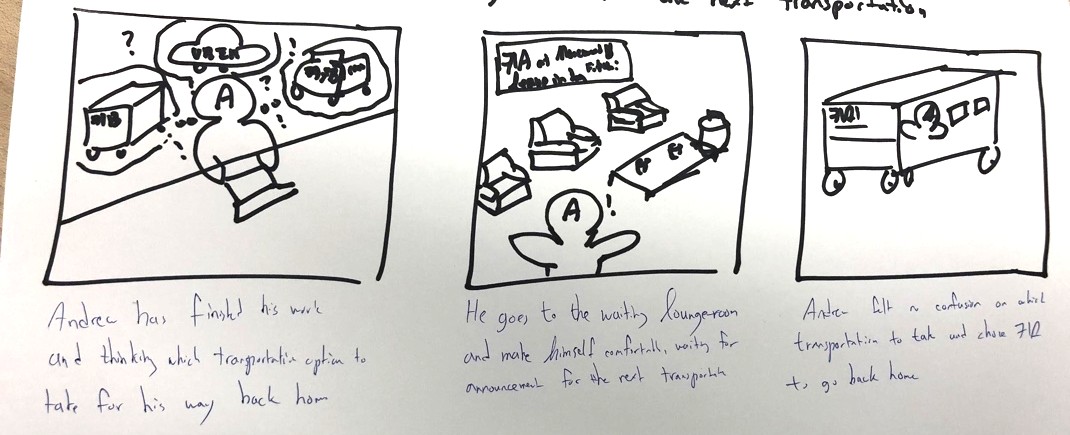 the next transportation
UBER
A
71B
71A at
A
71A
Andrea has finishd his work
and thinking which transportatio option to
take for his way back hom
He goes to the waiting loungeroom
and make himself confortabl, waitig for
announcement for the next transportatn
Andrea felt no confusion on which
transportation to take and chose 71A
to go back home